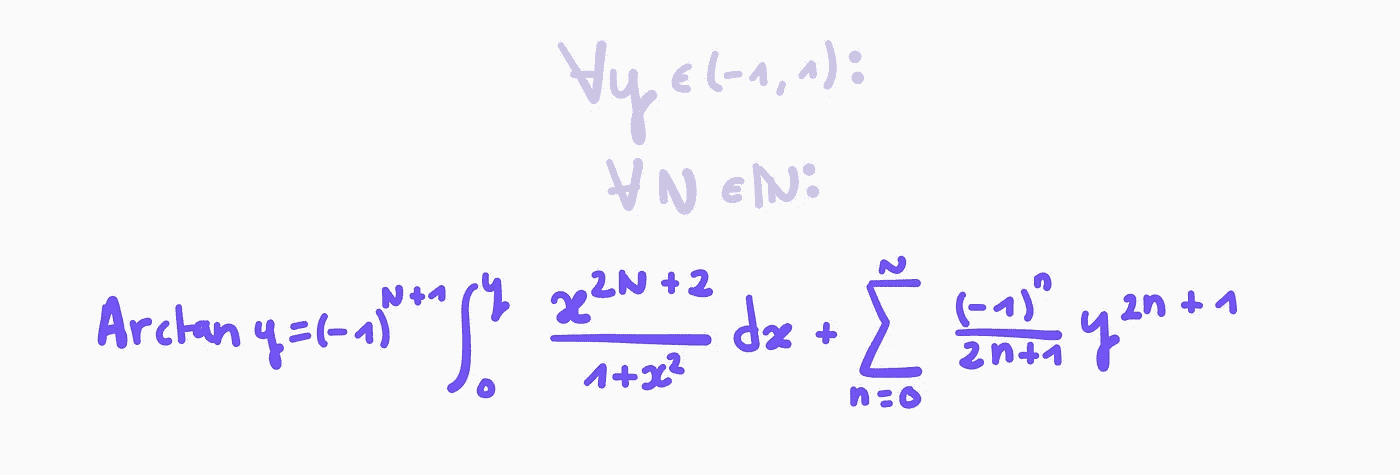 ∀y ∈ (-1, 1):
∀ N ∈ ℕ:
Arctan y = (-1)^{N+1} ∫_0^y \frac{x^{2N+2}}{1+x^2} dx + ∑_{n=0}^{N} \frac{(-1)^n}{2n+1} y^{2n+1}